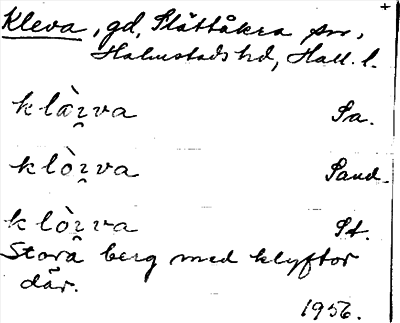 +
Kleva, gd, Slättåkra sn,
Halmstads hd, Hall. l.
klàɪ̯va Sa.
klòɪ̯va Sand.
klòɪ̯va St.
Stora berg med klyftor
där.
1956.